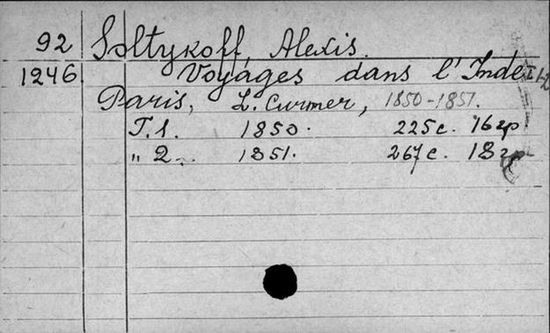 92 Soltykoff, Alexis.
1246. Voyages dans l'Inde
Paris, L. Curmer, 1850-1851.
T.1. 1850. 225c. 16гр
„ 2. 1851. 267c. 18гр